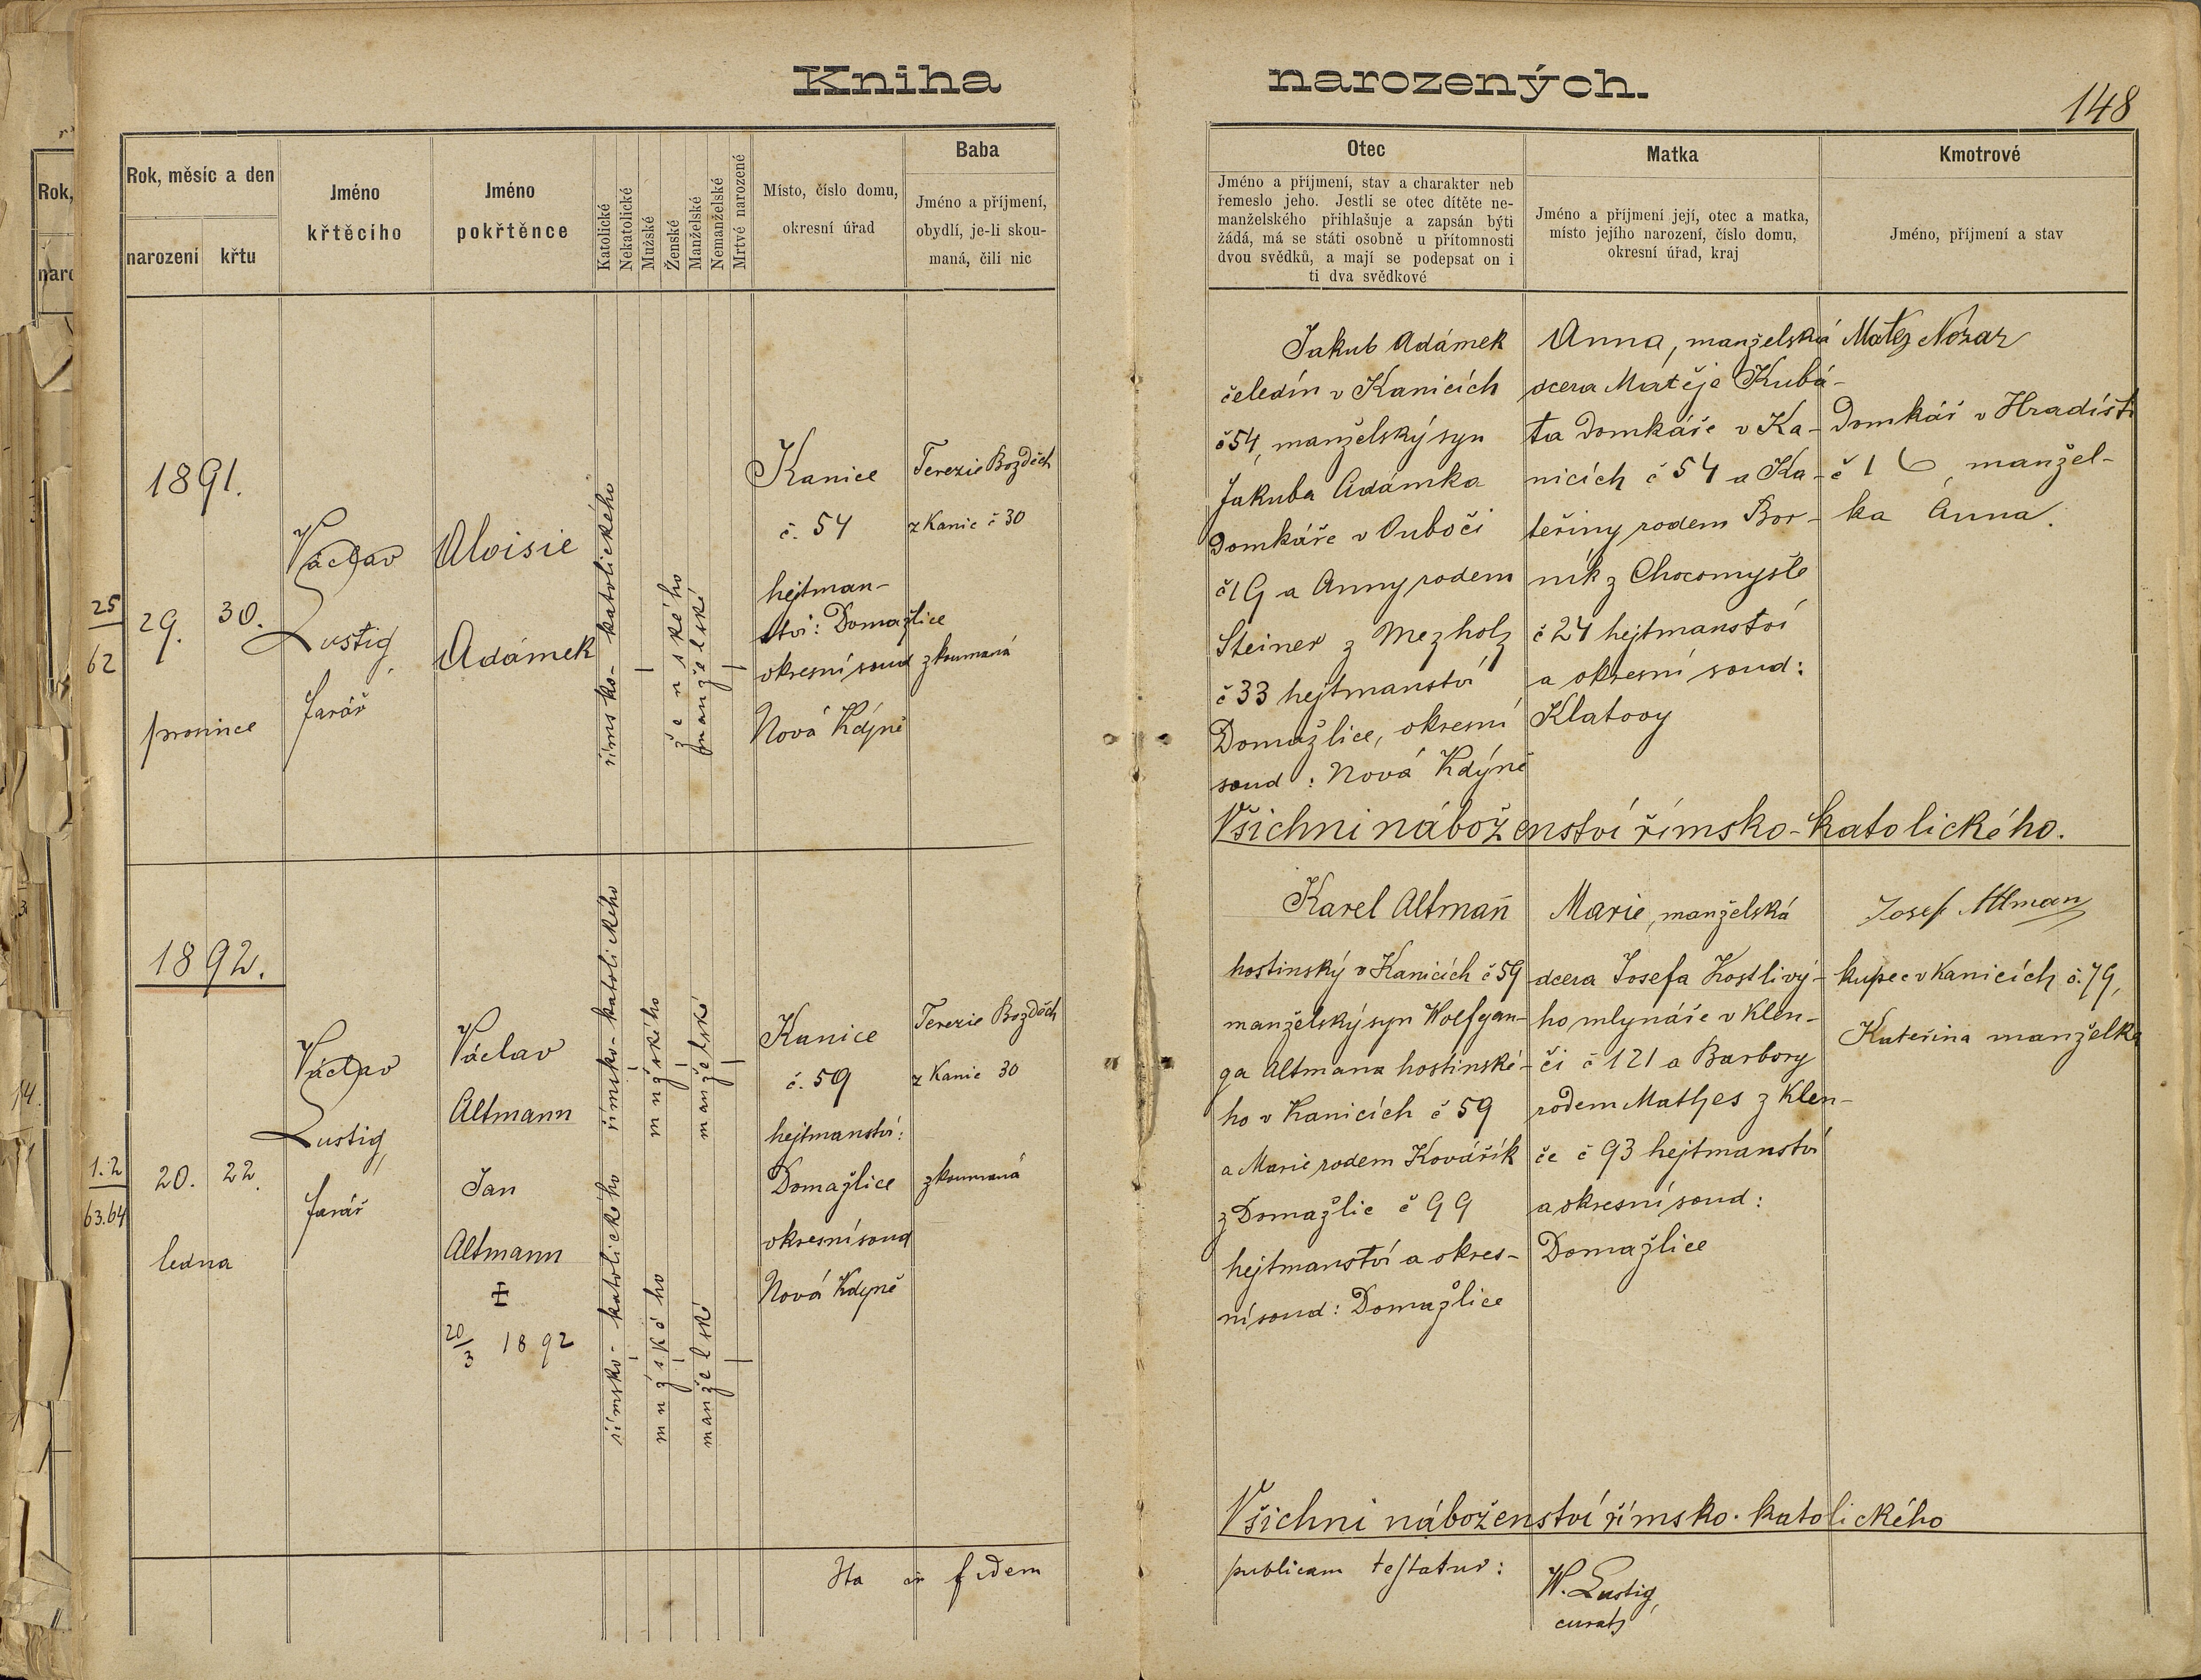 Kniha narozených.
148
Rok, měsíc a den
narození
křtu
Jméno
křtěcího
Jméno
pokřtěnce
Katolické
Nekatolické
Mužské
Ženské
Manželské
Nemanželské
Mrtvé narozené
Místo, číslo domu,
okresní úřad
Baba
Jméno a příjmení,
obydlí, je-li skou-
maná, čili nic
Otec
Jméno a příjmení, stav a charakter neb
řemeslo jeho. Jestli se otec dítěte ne-
manželského přihlašuje a zapsán býti
žádá, má se státi osobně u přítomnosti
dvou svědků, a mají se podepsat on i
ti dva svědkové
Matka
Jméno a příjmení její, otec a matka,
místo jejího narození, číslo domu,
okresní úřad, kraj
Kmotrové
Jméno, příjmení a stav
25
62
1891.
29.
30.
prosince
Václav
Lustig,
farář
Aloisie
Adámek
římsko-katolického
ženského
manželské
Kanice
č. 54
hejtman-
ství: Domažlice
okresní soud
Nová Kdyně
Terezie Bozděch
z Kanic č 30
zkoumaná
Jakub Adámek
čeledín v Kanicích
č 54, manželský syn
Jakuba Adámka
domkáře v Úboči
č 19 a Anny rodem
Steiner z Mezholz
č 33 hejtmanství
Domažlice, okresní
soud: Nová Kdýně
Anna, manželská
dcera Matěje Kubá-
ta domkáře v Ka-
nicích č 54 a Ka-
teřiny rodem Bor-
ník z Chocomyšle
č 24 hejtmanství
a okresní soud:
Klatovy
Matěj Nozar
Domkář v Hradišti
č 16, manžel-
ka Anna.
Všichni náboženství římsko-katolického.
1.2
63.64
1892.
20.
22.
ledna
Václav
Lustig,
farář
Václav
Altmann
Jan
Altmann
20/3 1892
římsko-katolického
mužského
manželské
římsko-katolického
mužského
manželské
Kanice
č. 59
hejtmanství:
Domažlice
okresní soud
Nová Kdyně
Terezie Bozděch
z Kanic 30
zkoumaná
Karel Altmañ
hostinský v Kanicích č 59
manželský syn Wolfgan-
ga Altmana hostinské-
ho v Kanicích č 59
a Marie rodem Kovářík
z Domažlic č 99
hejtmanství a okres-
ní soud: Domažlice
Marie, manželská
dcera Josefa Kostlivý-
ho mlynáře v Klen-
čí č 121 a Barbory
rodem Mathes z Klen-
če č 93 hejtmanství
a okresní soud:
Domažlice
Josef Altman
kupec v Kanicích č. 79,
Kateřina manželka
Všichni náboženství římsko-katolického
Ita in fidem publicam testatur:
W. Lustig,